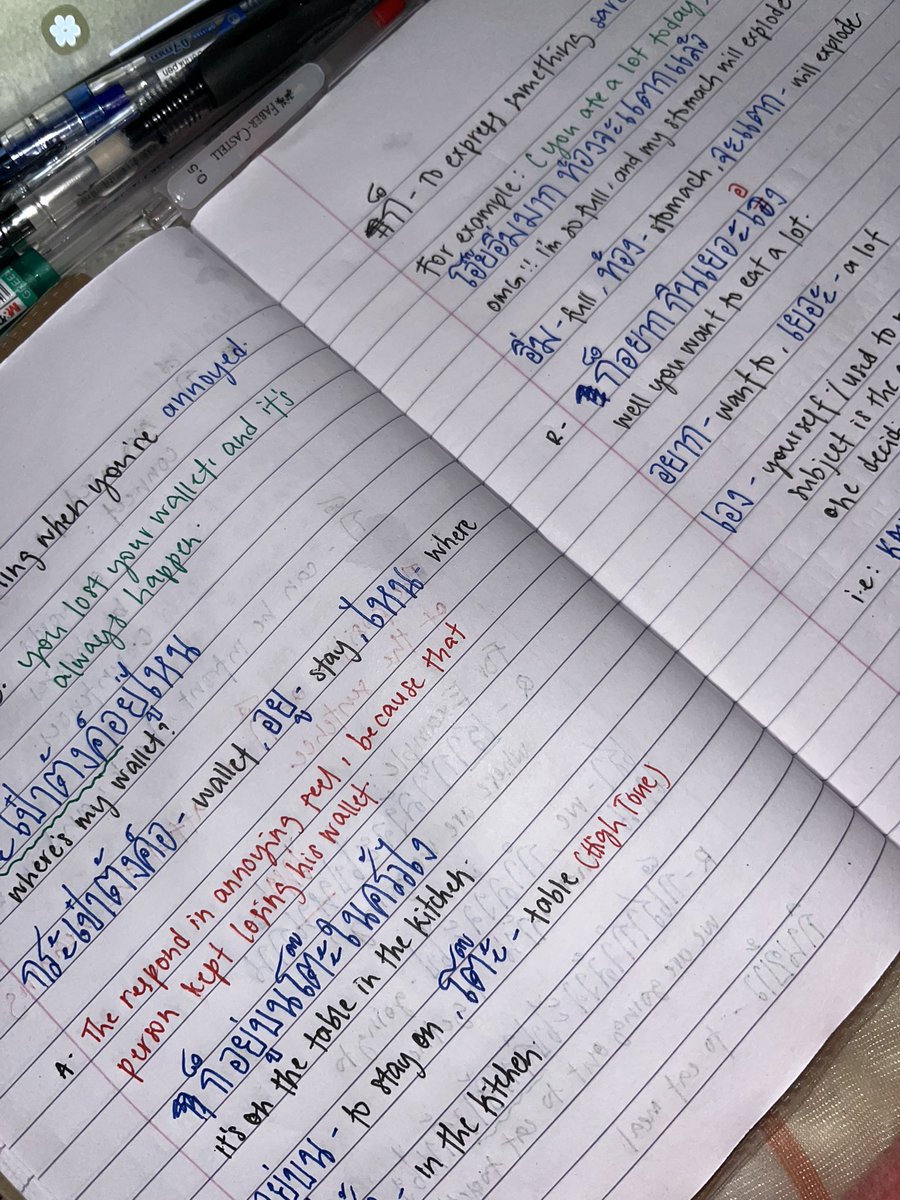 when you're annoyed.
you lost your wallet, and it's
always happen.
เป๋าตังค์อยู่ไหน
where's my wallet?
กระเป๋าตังค์ - wallet, อยู่ - stay, ไหน - where
A - The respond in annoying feel, because that
person kept losing his wallet.
ก็อยู่บนโต๊ะในครัวไง
it's on the table in the kitchen.
อยู่บน - to stay on, โต๊ะ - table (High Tone)
- in the kitchen.
ก็ - To express something
For example: (you ate a lot today,
โอ๊ยอิ่มมาก ท้องจะแตกแล้ว
OMG!! I'm so full, and my stomach will explode
อิ่ม - full, ท้อง - stomach, จะแตก - will explode
R - ก็อยากกินเยอะเอง
well you want to eat a lot.
อยาก - want to, เยอะ - a lot
เอง - yourself / used to
subject is the
one
i.e:
FABER-CASTELL
0.5